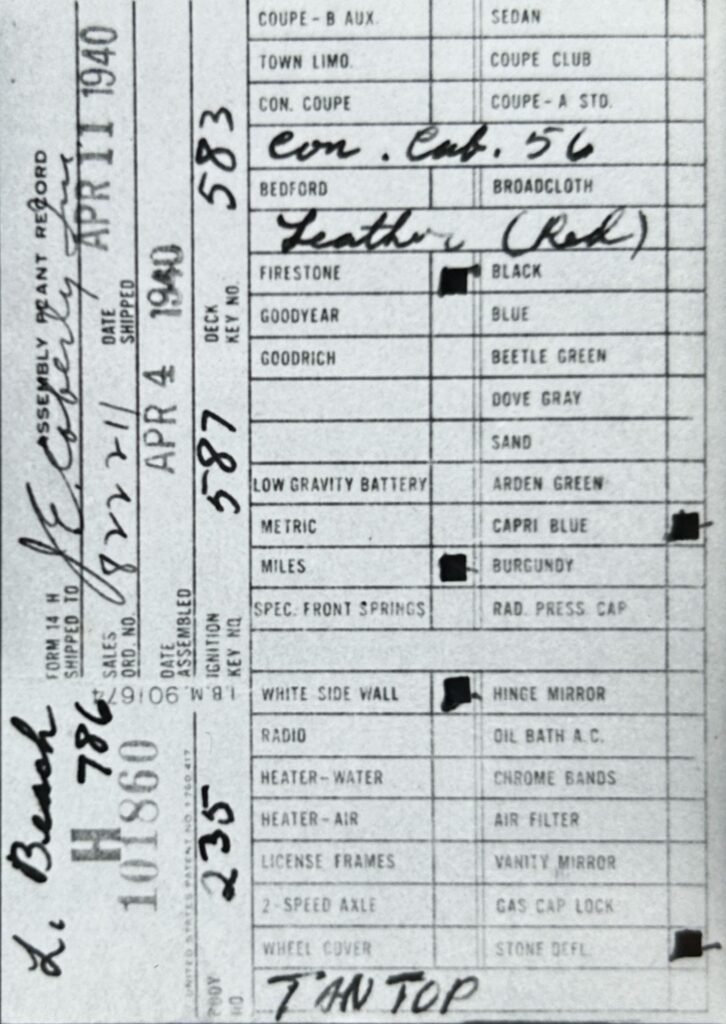 ASSEMBLY PLANT RECORD
FORM 14 H
SHIPPED TO J E. Coberly Inc
SALES ORD. NO. 82221
DATE SHIPPED APR 11 1940
DATE ASSEMBLED APR 4 1940
IGNITION KEY NO. 587
DECK KEY NO. 583
I.B.M. 901674
L. Beach
786
H
101860
UNITED STATES PATENT NO. 1 780 417
BODY NO. 235
COUPE-B AUX. SEDAN
TOWN LIMO. COUPE CLUB
CON. COUPE COUPE-A STD.
Con. Cab. 56
BEDFORD BROADCLOTH
Leather (Red)
FIRESTONE BLACK
GOODYEAR BLUE
GOODRICH BEETLE GREEN
DOVE GRAY
SAND
LOW GRAVITY BATTERY ARDEN GREEN
METRIC CAPRI BLUE
MILES BURGUNDY
SPEC. FRONT SPRINGS RAD. PRESS CAP
WHITE SIDE WALL HINGE MIRROR
RADIO OIL BATH A.C.
HEATER-WATER CHROME BANDS
HEATER-AIR AIR FILTER
LICENSE FRAMES VANITY MIRROR
2-SPEED AXLE GAS CAP LOCK
WHEEL COVER STONE DEFL.
TAN TOP